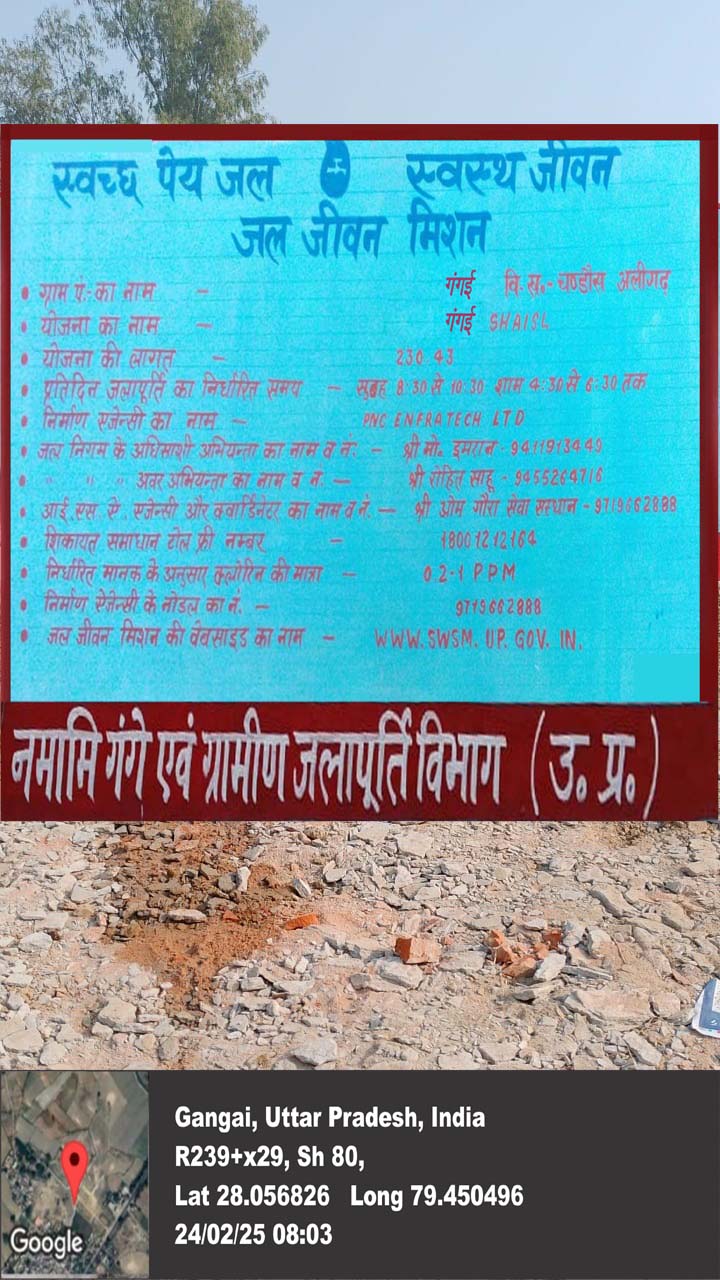 स्वच्छ पेय जल स्वस्थ जीवन
जल जीवन मिशन
• ग्राम पं:-का नाम - गंगई वि.ख.-चण्डौस अलीगढ़
• योजना का नाम - गंगई SHAISL
• योजना की लागत - 230.43
• प्रतिदिन जलापूर्ति का निर्धारित समय - सुबह 8:30 से 10:30 शाम 4:30 से 6:30 तक
• निर्माण एजेन्सी का नाम - PNC ENFRATECH LTD
• जल निगम के अधिशाशी अभियन्ता का नाम व नं: - श्री मो. इमरान - 9411913449
• " " " अवर अभियन्ता का नाम व न.- श्री रोहित साहू - 9455264716
• आई.एस.ए. एजेन्सी और क्वार्डिनेटर का नाम व नं. - श्री ओम गौरा सेवा सस्थान - 9719662888
• शिकायत समाधान टोल फ्री नम्बर - 18001212164
• निर्धारित मानक के अनुसार क्लोरिन की मात्रा - 0.2-1 PPM
• निर्माण ऐजेन्सी के नोडल का नं. - 9719662888
• जल जीवन मिशन की वेबसाइड का नाम - WWW.SWSM.UP.GOV.IN.
नमामि गंगे एवं ग्रामीण जलापूर्ति विभाग (उ. प्र.)
Gangai, Uttar Pradesh, India
R239+x29, Sh 80,
Lat 28.056826 Long 79.450496
24/02/25 08:03
Google